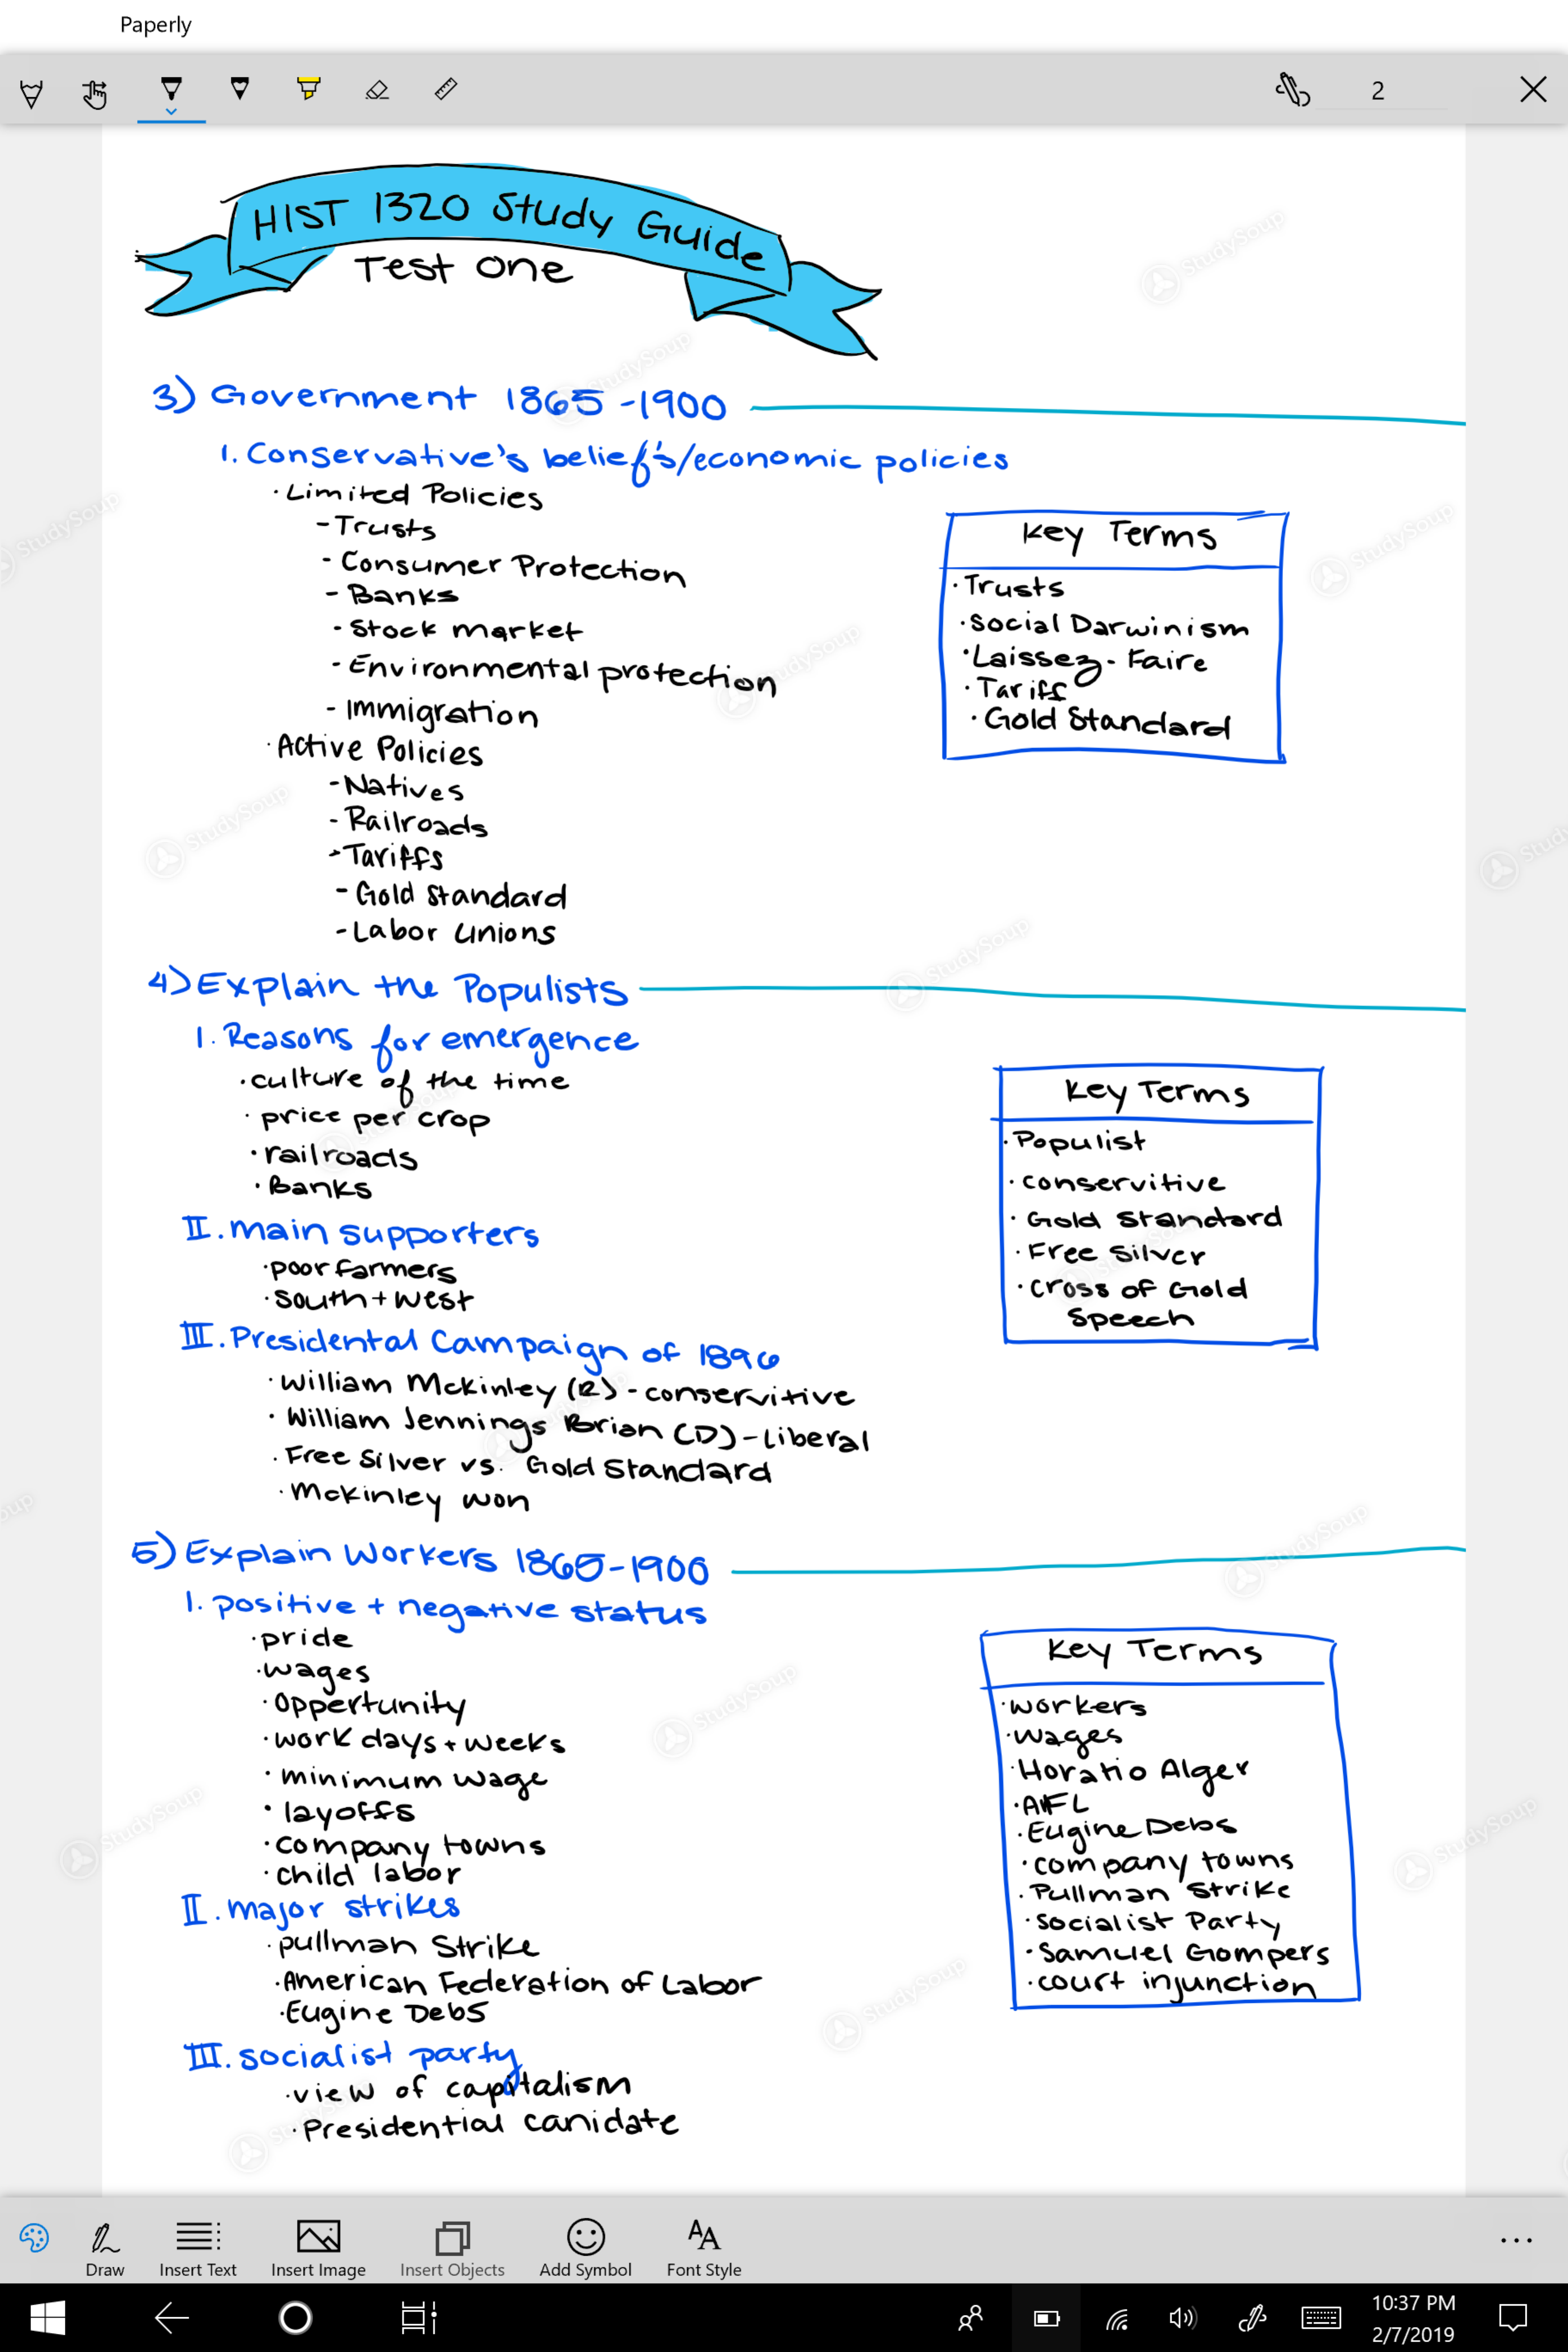 Paperly
2
HIST 1320 Study Guide
Test One
3) Government 1865-1900
1. Conservative's belief's/economic policies
· Limited Policies
- Trusts
- Consumer Protection
- Banks
- Stock market
- Environmental protection
- Immigration
· Active Policies
- Natives
- Railroads
- Tariffs
- Gold Standard
- Labor Unions
Key Terms
· Trusts
· Social Darwinism
· Laissez-Faire
· Tariff
· Gold Standard
4) Explain the Populists
1. Reasons for emergence
· culture of the time
· price per crop
· railroads
· Banks
II. main supporters
· poor farmers
· South + West
III. Presidental Campaign of 1896
· William Mckinley (R) - conservitive
· William Jennings Brian (D) - Liberal
· Free Silver vs. Gold Standard
· Mckinley won
Key Terms
· Populist
· conservitive
· Gold Standard
· Free Silver
· Cross of Gold
Speech
5) Explain Workers 1865-1900
1. positive + negative status
· pride
· wages
· Oppertunity
· work days + weeks
· minimum wage
· layoffs
· company towns
· child labor
II. major strikes
· pullman Strike
· American Federation of Labor
· Eugine Debs
III. socialist party
· view of capitalism
· Presidential canidate
Key Terms
· workers
· wages
· Horatio Alger
· AFL
· Eugine Debs
· company towns
· Pullman Strike
· Socialist Party
· Samuel Gompers
· court injunction
StudySoup
Draw
Insert Text
Insert Image
Insert Objects
Add Symbol
Font Style
10:37 PM
2/7/2019